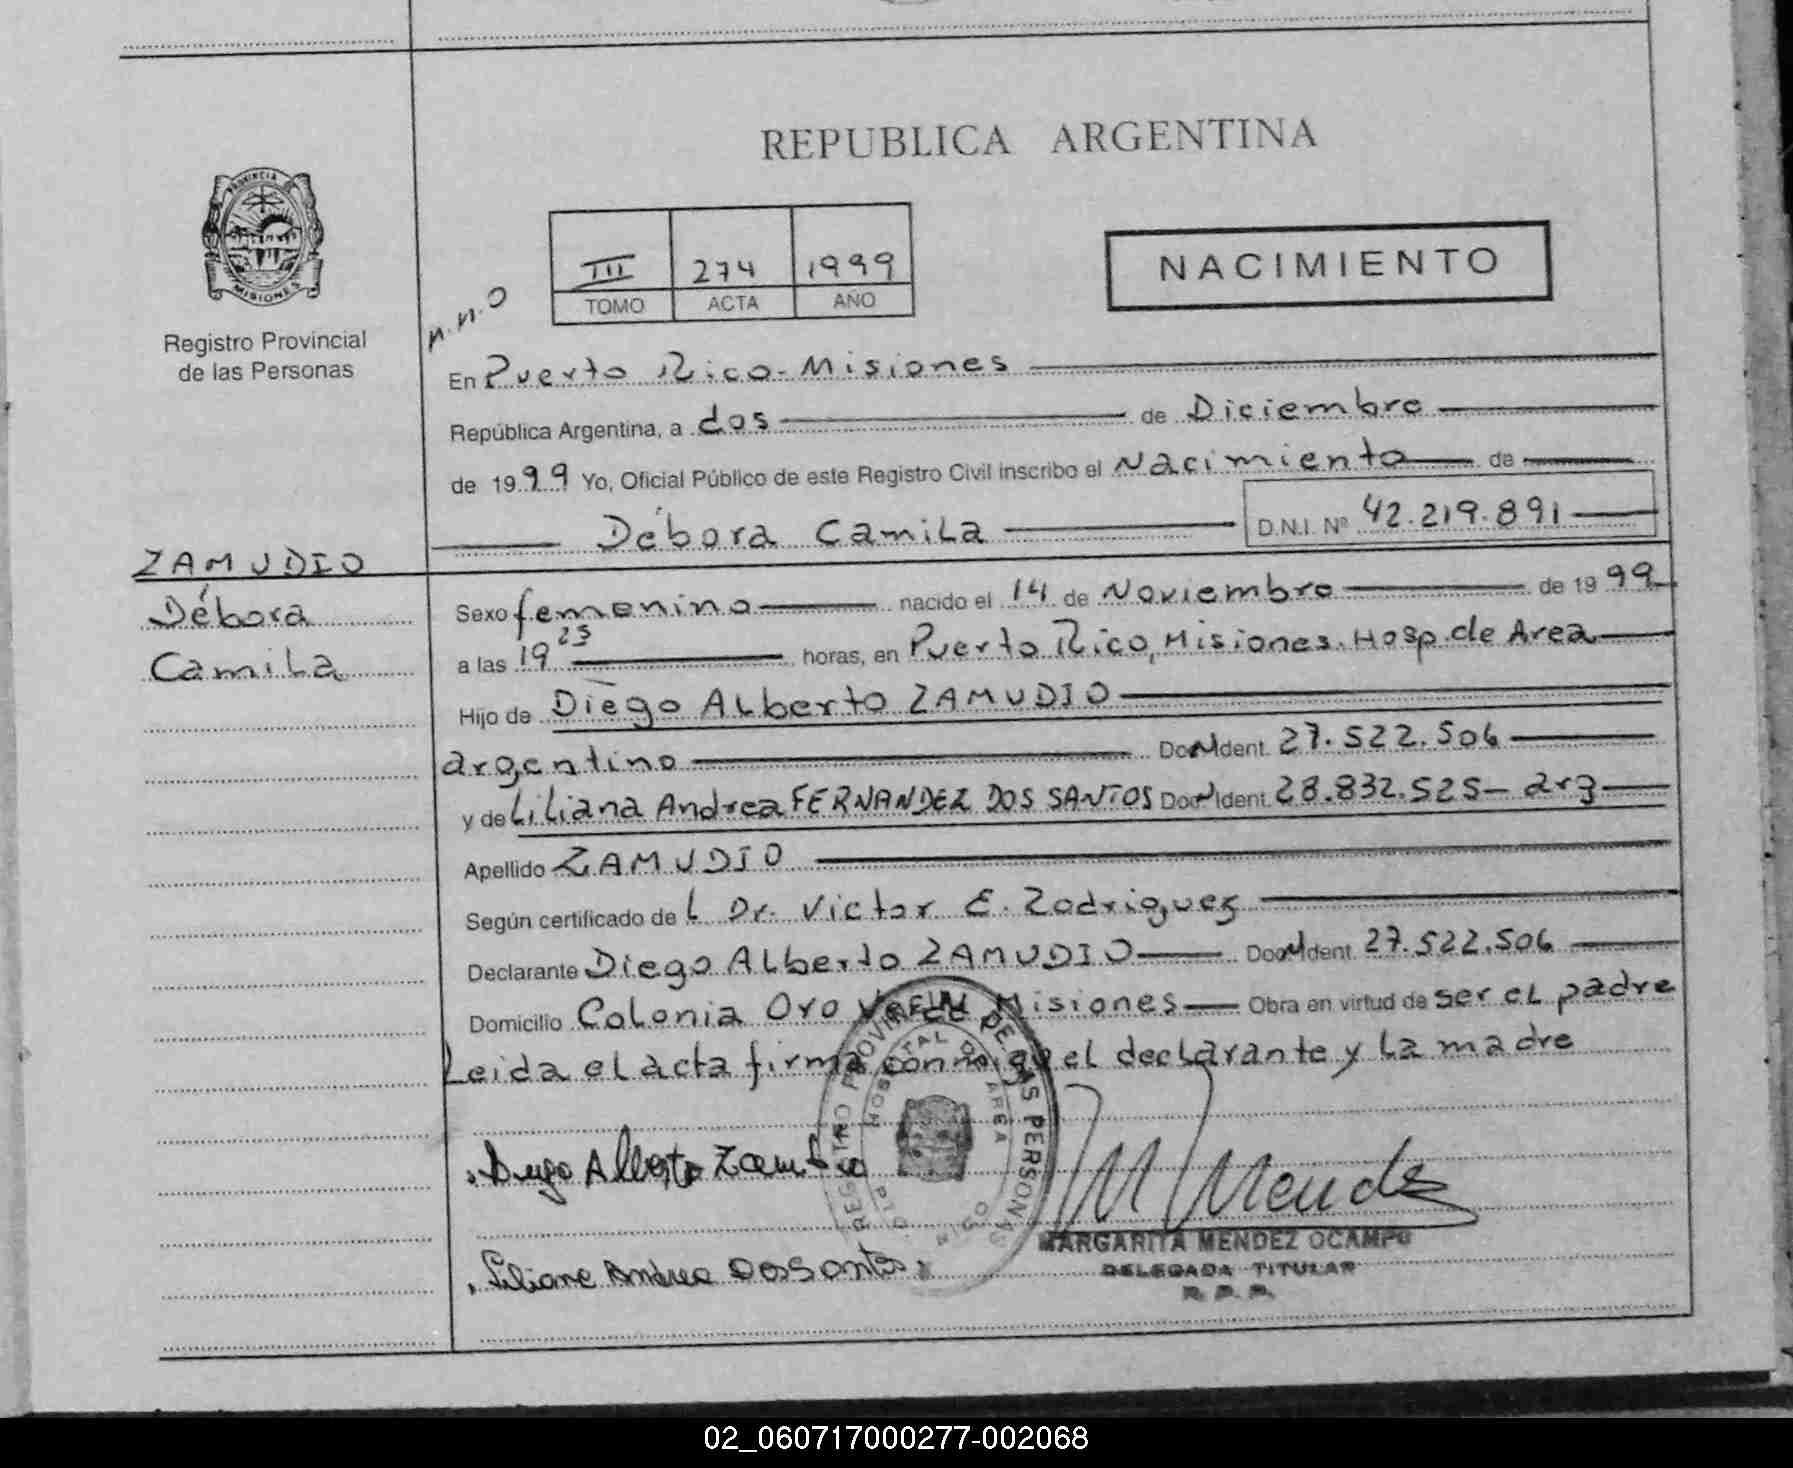 REPUBLICA ARGENTINA
PROVINCIA DE
MISIONES
Registro Provincial
de las Personas
III 274 1999
TOMO ACTA AÑO
NACIMIENTO
n.n.o
En Puerto Rico - Misiones
República Argentina, a dos de Diciembre
de 1999 Yo, Oficial Público de este Registro Civil inscribo el Nacimiento de
Débora Camila D.N.I. Nº 42.219.891
ZAMUDIO
Débora
Camila
Sexo femenino nacido el 14 de Noviembre de 1999
a las 19 25 horas, en Puerto Rico, Misiones. Hosp. de Area
Hijo de Diego Alberto ZAMUDIO
argentino Doc Ident. 27.522.506
y de Liliana Andrea FERNANDEZ DOS SANTOS Doc Ident. 28.832.525 - arg
Apellido ZAMUDIO
Según certificado del Dr. Victor E. Rodriguez
Declarante Diego Alberto ZAMUDIO Doc Ident. 27.522.506
Domicilio Colonia Oro Verde Misiones Obra en virtud de ser el padre
Leida el acta firma conmigo el declarante y la madre
REGISTRO PROVINCIAL DE LAS PERSONAS
HOSPITAL DE AREA
Diego Alberto Zamudio
M Mendez
MARGARITA MENDEZ OCAMPO
Liliana Andrea Dos Santos
DELEGADA TITULAR
R. P. P.
02_060717000277-002068